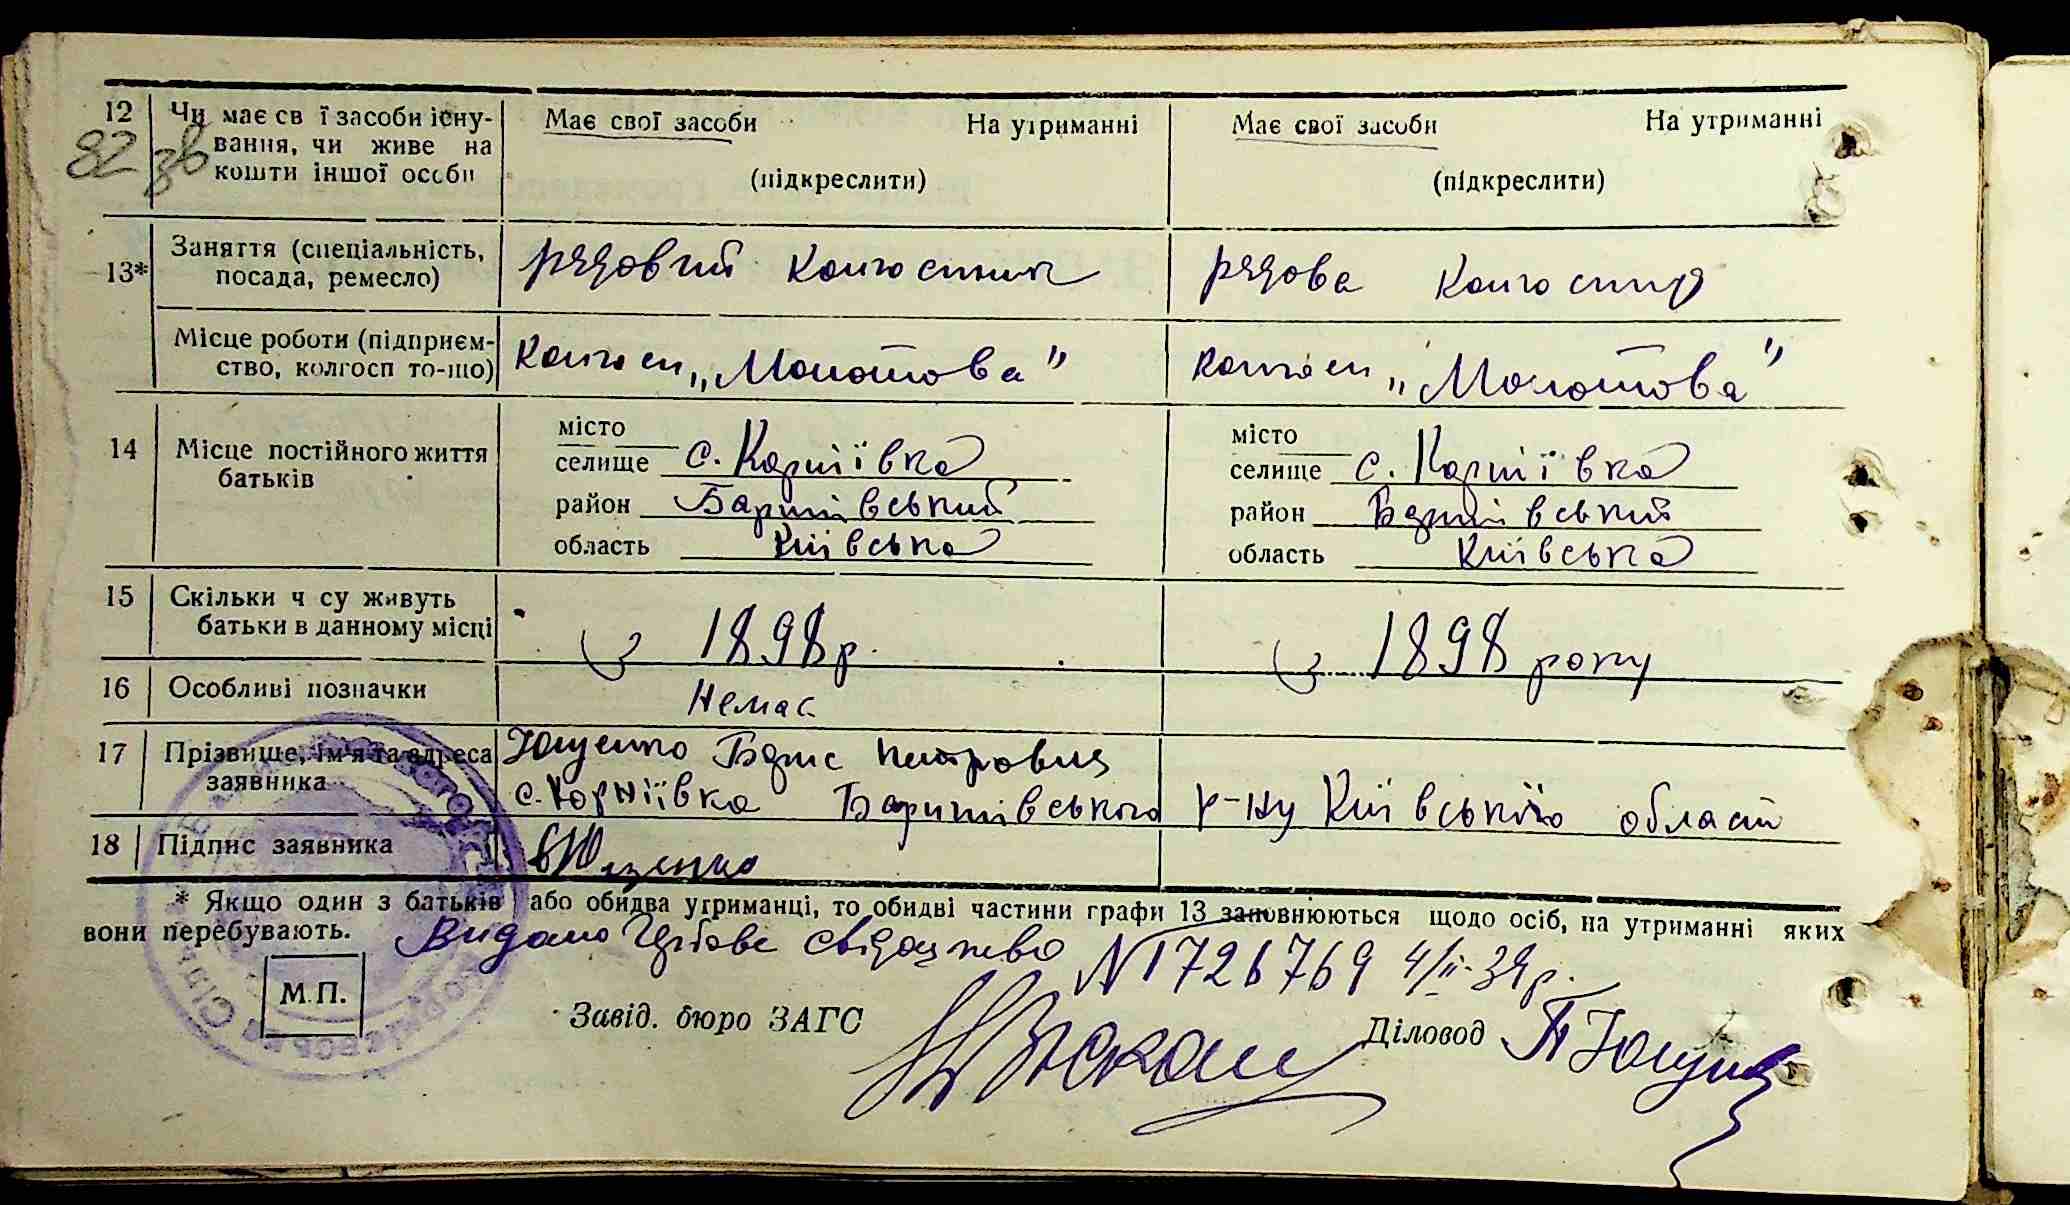 12 Чи має св ї засоби існу-
вання, чи живе на
кошти іншої особи
82 зв
Має свої засоби На утриманні
(підкреслити)
Має свої засоби На утриманні
(підкреслити)
13* Заняття (спеціальність,
посада, ремесло)
рядовий колгоспник
рядова колгоспниця
Місце роботи (підприєм-
ство, колгосп то-що)
колгосп „Молотова"
колгосп „Молотова"
14 Місце постійного життя
батьків
місто
селище с. Корніївка
район Баришівський
область Київська
місто
селище с. Корніївка
район Баришівський
область Київська
15 Скільки ч су живуть
батьки в данному місці
з 1898 р.
з 1898 року
16 Особливі позначки
Немає
17 Прізвище, ім'я та адреса
заявника
Ющенко Борис Петрович
с. Корніївка Баришівського р-ну Київської області
18 Підпис заявника
ВЮщенко
* Якщо один з батьків або обидва утриманці, то обидві частини графи 13 заповнюються щодо осіб, на утриманні яких
вони перебувають.
Видано свідоцтво N 1726769 4/II-39р.
М.П.
Завід. бюро ЗАГС
Діловод